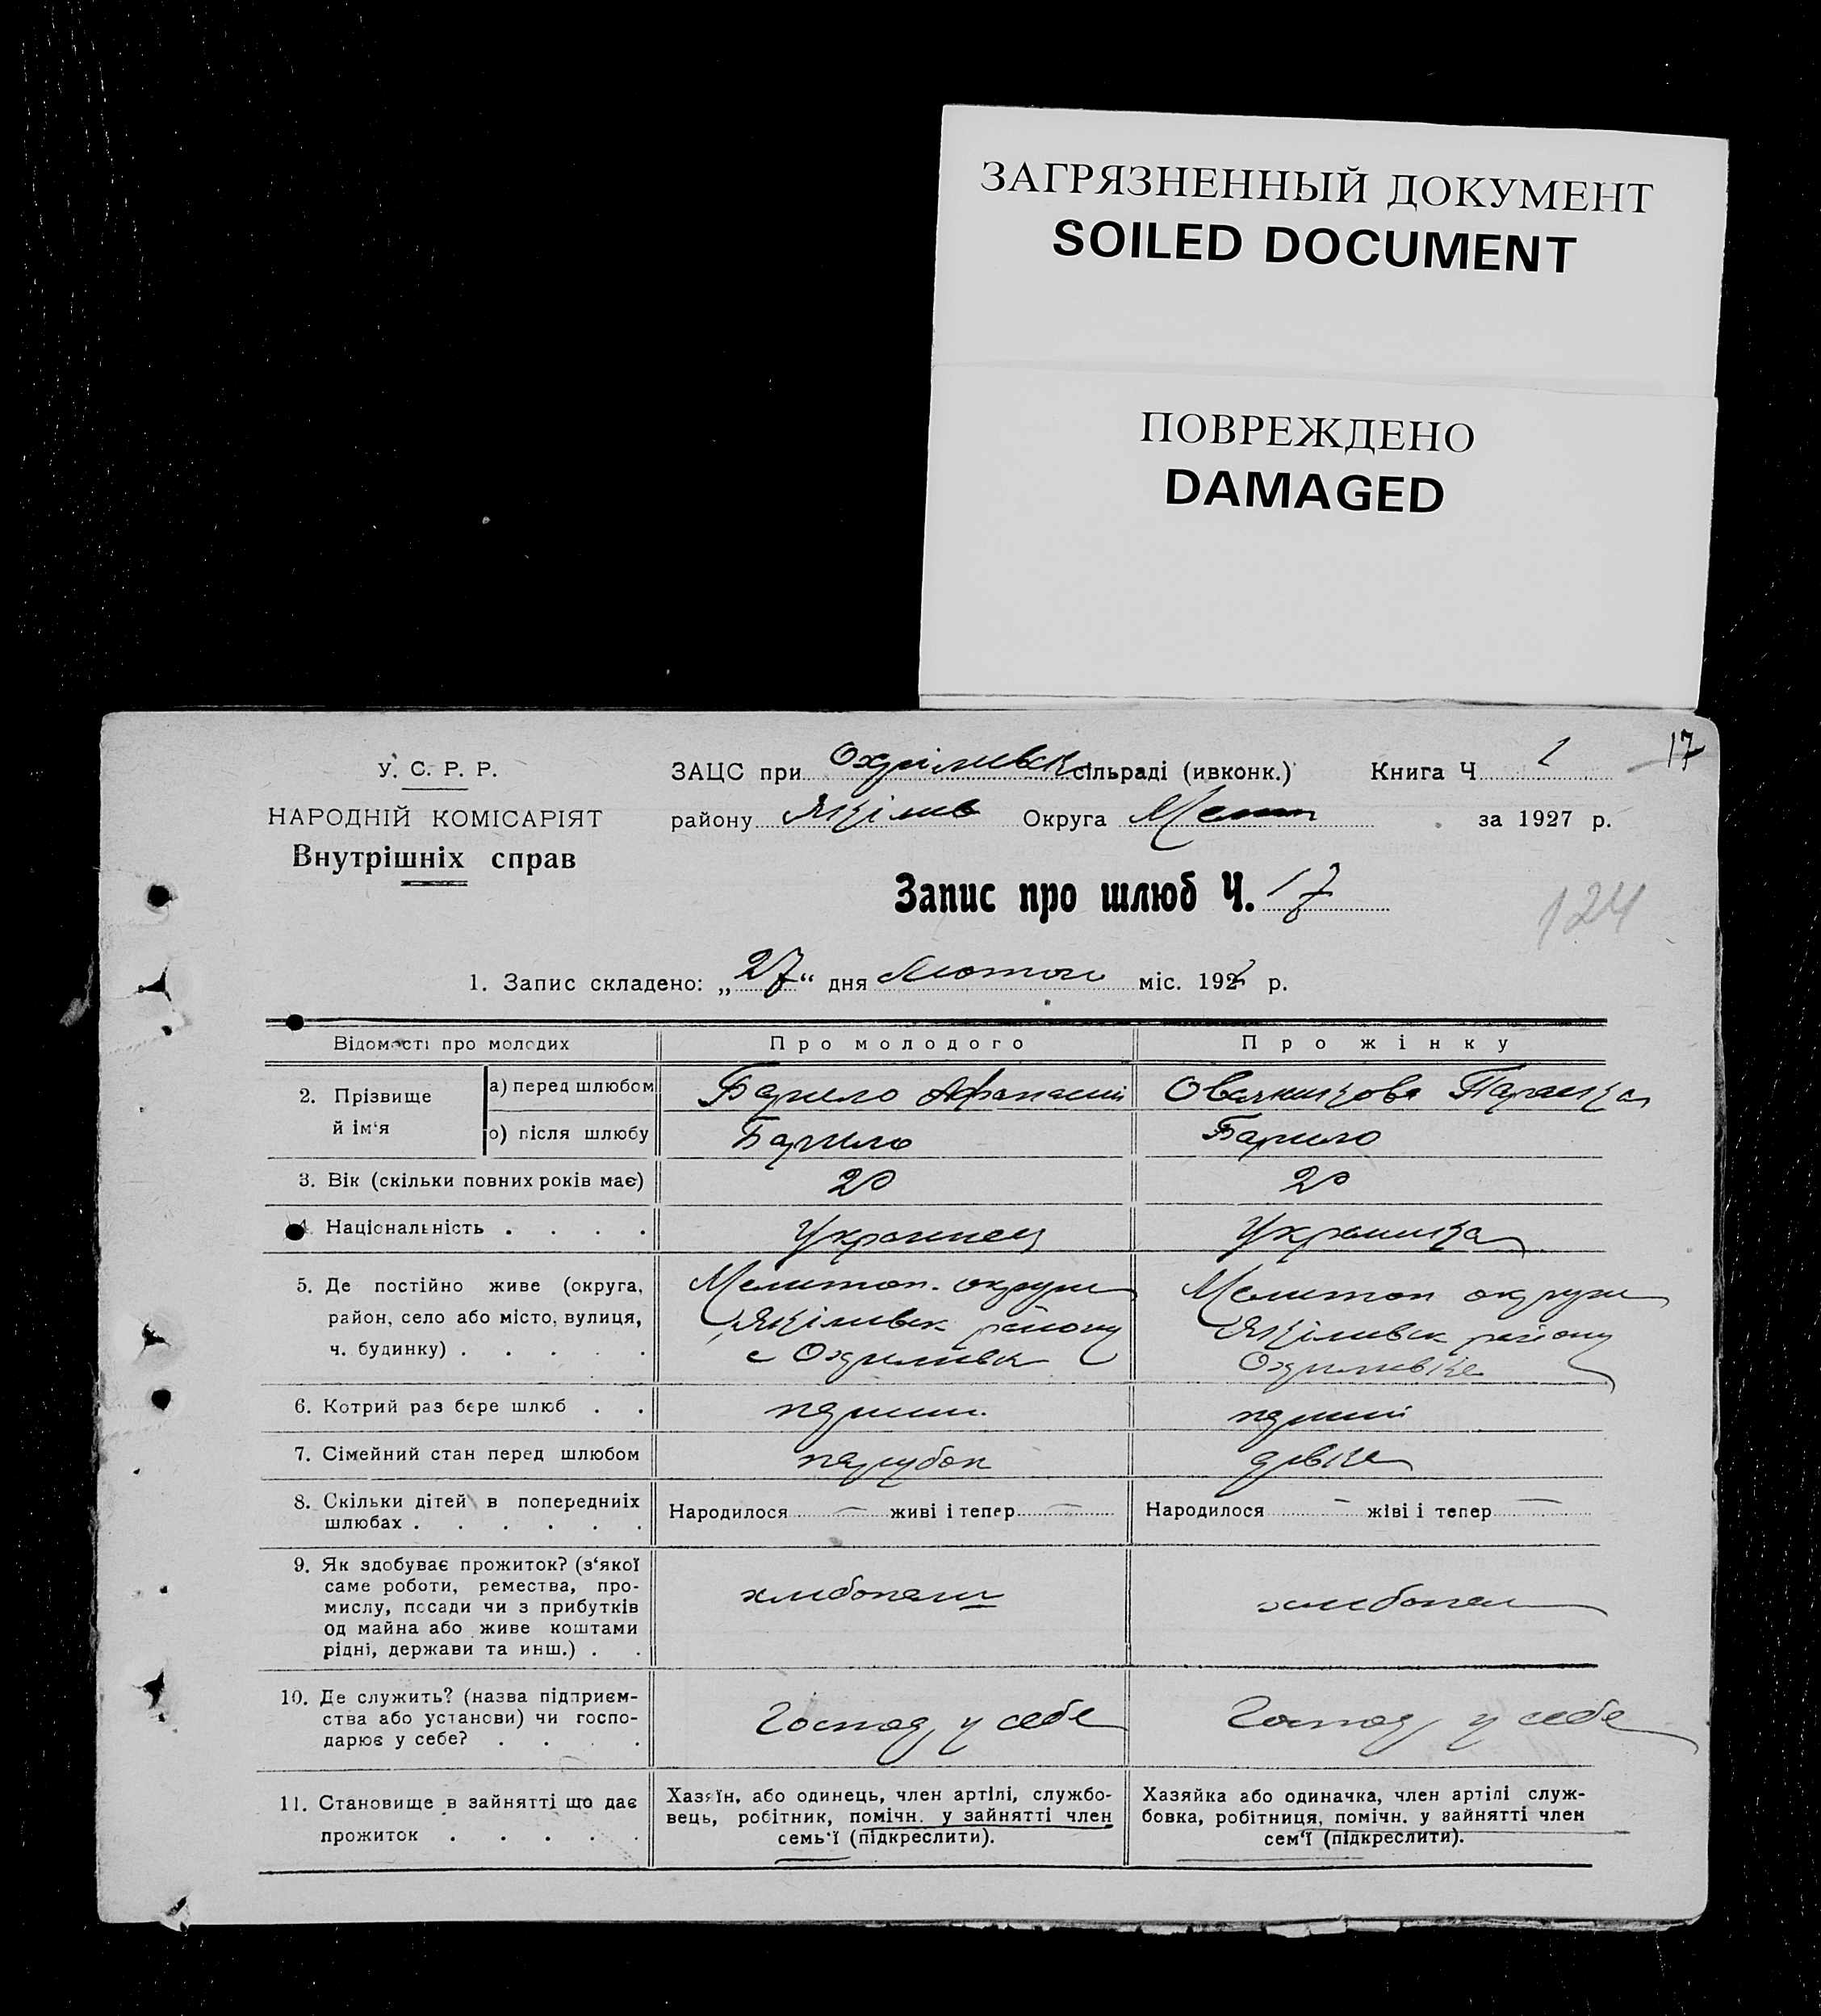 ЗАГРЯЗНЕННЫЙ ДОКУМЕНТ
SOILED DOCUMENT
ПОВРЕЖДЕНО
DAMAGED
17
У. С. Р. Р.
НАРОДНІЙ КОМІСАРІЯТ
Внутрішніх справ
ЗАЦС при Охрімівск сільраді (ивконк.) Книга Ч 1
району Якімів Округа Мелит за 1927 р.
Запис про шлюб Ч. 17
124
1. Запис складено: „27“ дня Лютого міс. 1927 р.
Відомості про молодих
Про молодого
Про жінку
2. Прізвище й ім'я
а) перед шлюбом
Барило Афанасий
Овсянникова Параска
о) після шлюбу
Барило
Барило
3. Вік (скільки повних років має)
20
20
4. Національність . . . .
Украинец
Украинка
5. Де постійно живе (округа,
район, село або місто, вулиця,
ч. будинку) . . . . .
Мелитоп. округи
Якімівск району
с Охримівка
Мелитоп округи
Якімівск району
Охримівка
6. Котрий раз бере шлюб . .
перший
перший
7. Сімейний стан перед шлюбом
парубок
дівка
8. Скільки дітей в попередниіх
шлюбах . . . . . .
Народилося — живі і тепер —
Народилося — жіві і тепер —
9. Як здобуває прожиток? (з'якої
саме роботи, ремества, про-
мислу, посади чи з прибутків
од майна або живе коштами
рідні, держави та инш.) . .
хлибопаш
хлибопаш
10. Де служить? (назва підприєм-
ства або установи) чи госпо-
дарює у себе? . . . .
Господ у себе
Господ у себе
11. Становище в зайнятті що дає
прожиток . . . . .
Хазяїн, або одинець, член артілі, службо-
вець, робітник, помічн. у зайнятті член
семь'ї (підкреслити).
Хазяйка або одиначка, член артілі служ-
бовка, робітниця, помічн. у зайнятті член
сем'ї (підкреслити).